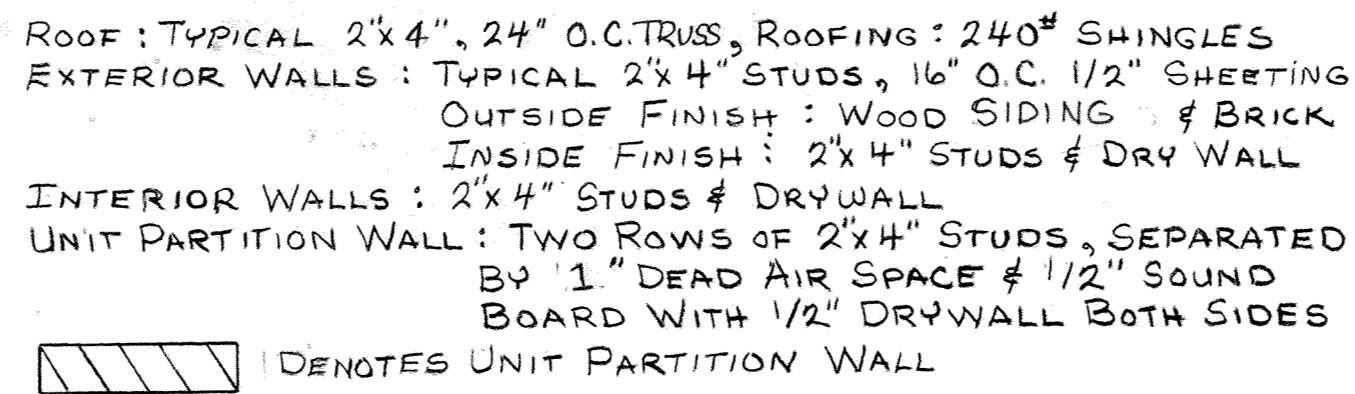 ROOF : TYPICAL 2"x 4", 24" O.C. TRUSS, ROOFING : 240# SHINGLES
EXTERIOR WALLS : TYPICAL 2"x 4" STUDS, 16" O.C. 1/2" SHEETING
OUTSIDE FINISH : WOOD SIDING & BRICK
INSIDE FINISH : 2"x 4" STUDS & DRY WALL
INTERIOR WALLS : 2"x 4" STUDS & DRYWALL
UNIT PARTITION WALL : TWO ROWS OF 2"x 4" STUDS, SEPARATED
BY 1" DEAD AIR SPACE & 1/2" SOUND
BOARD WITH 1/2" DRYWALL BOTH SIDES
DENOTES UNIT PARTITION WALL